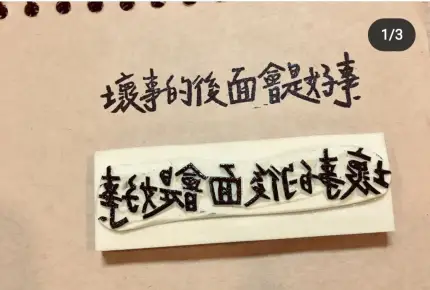 1/3
壞事的後面會是好事
壞事的後面會是好事